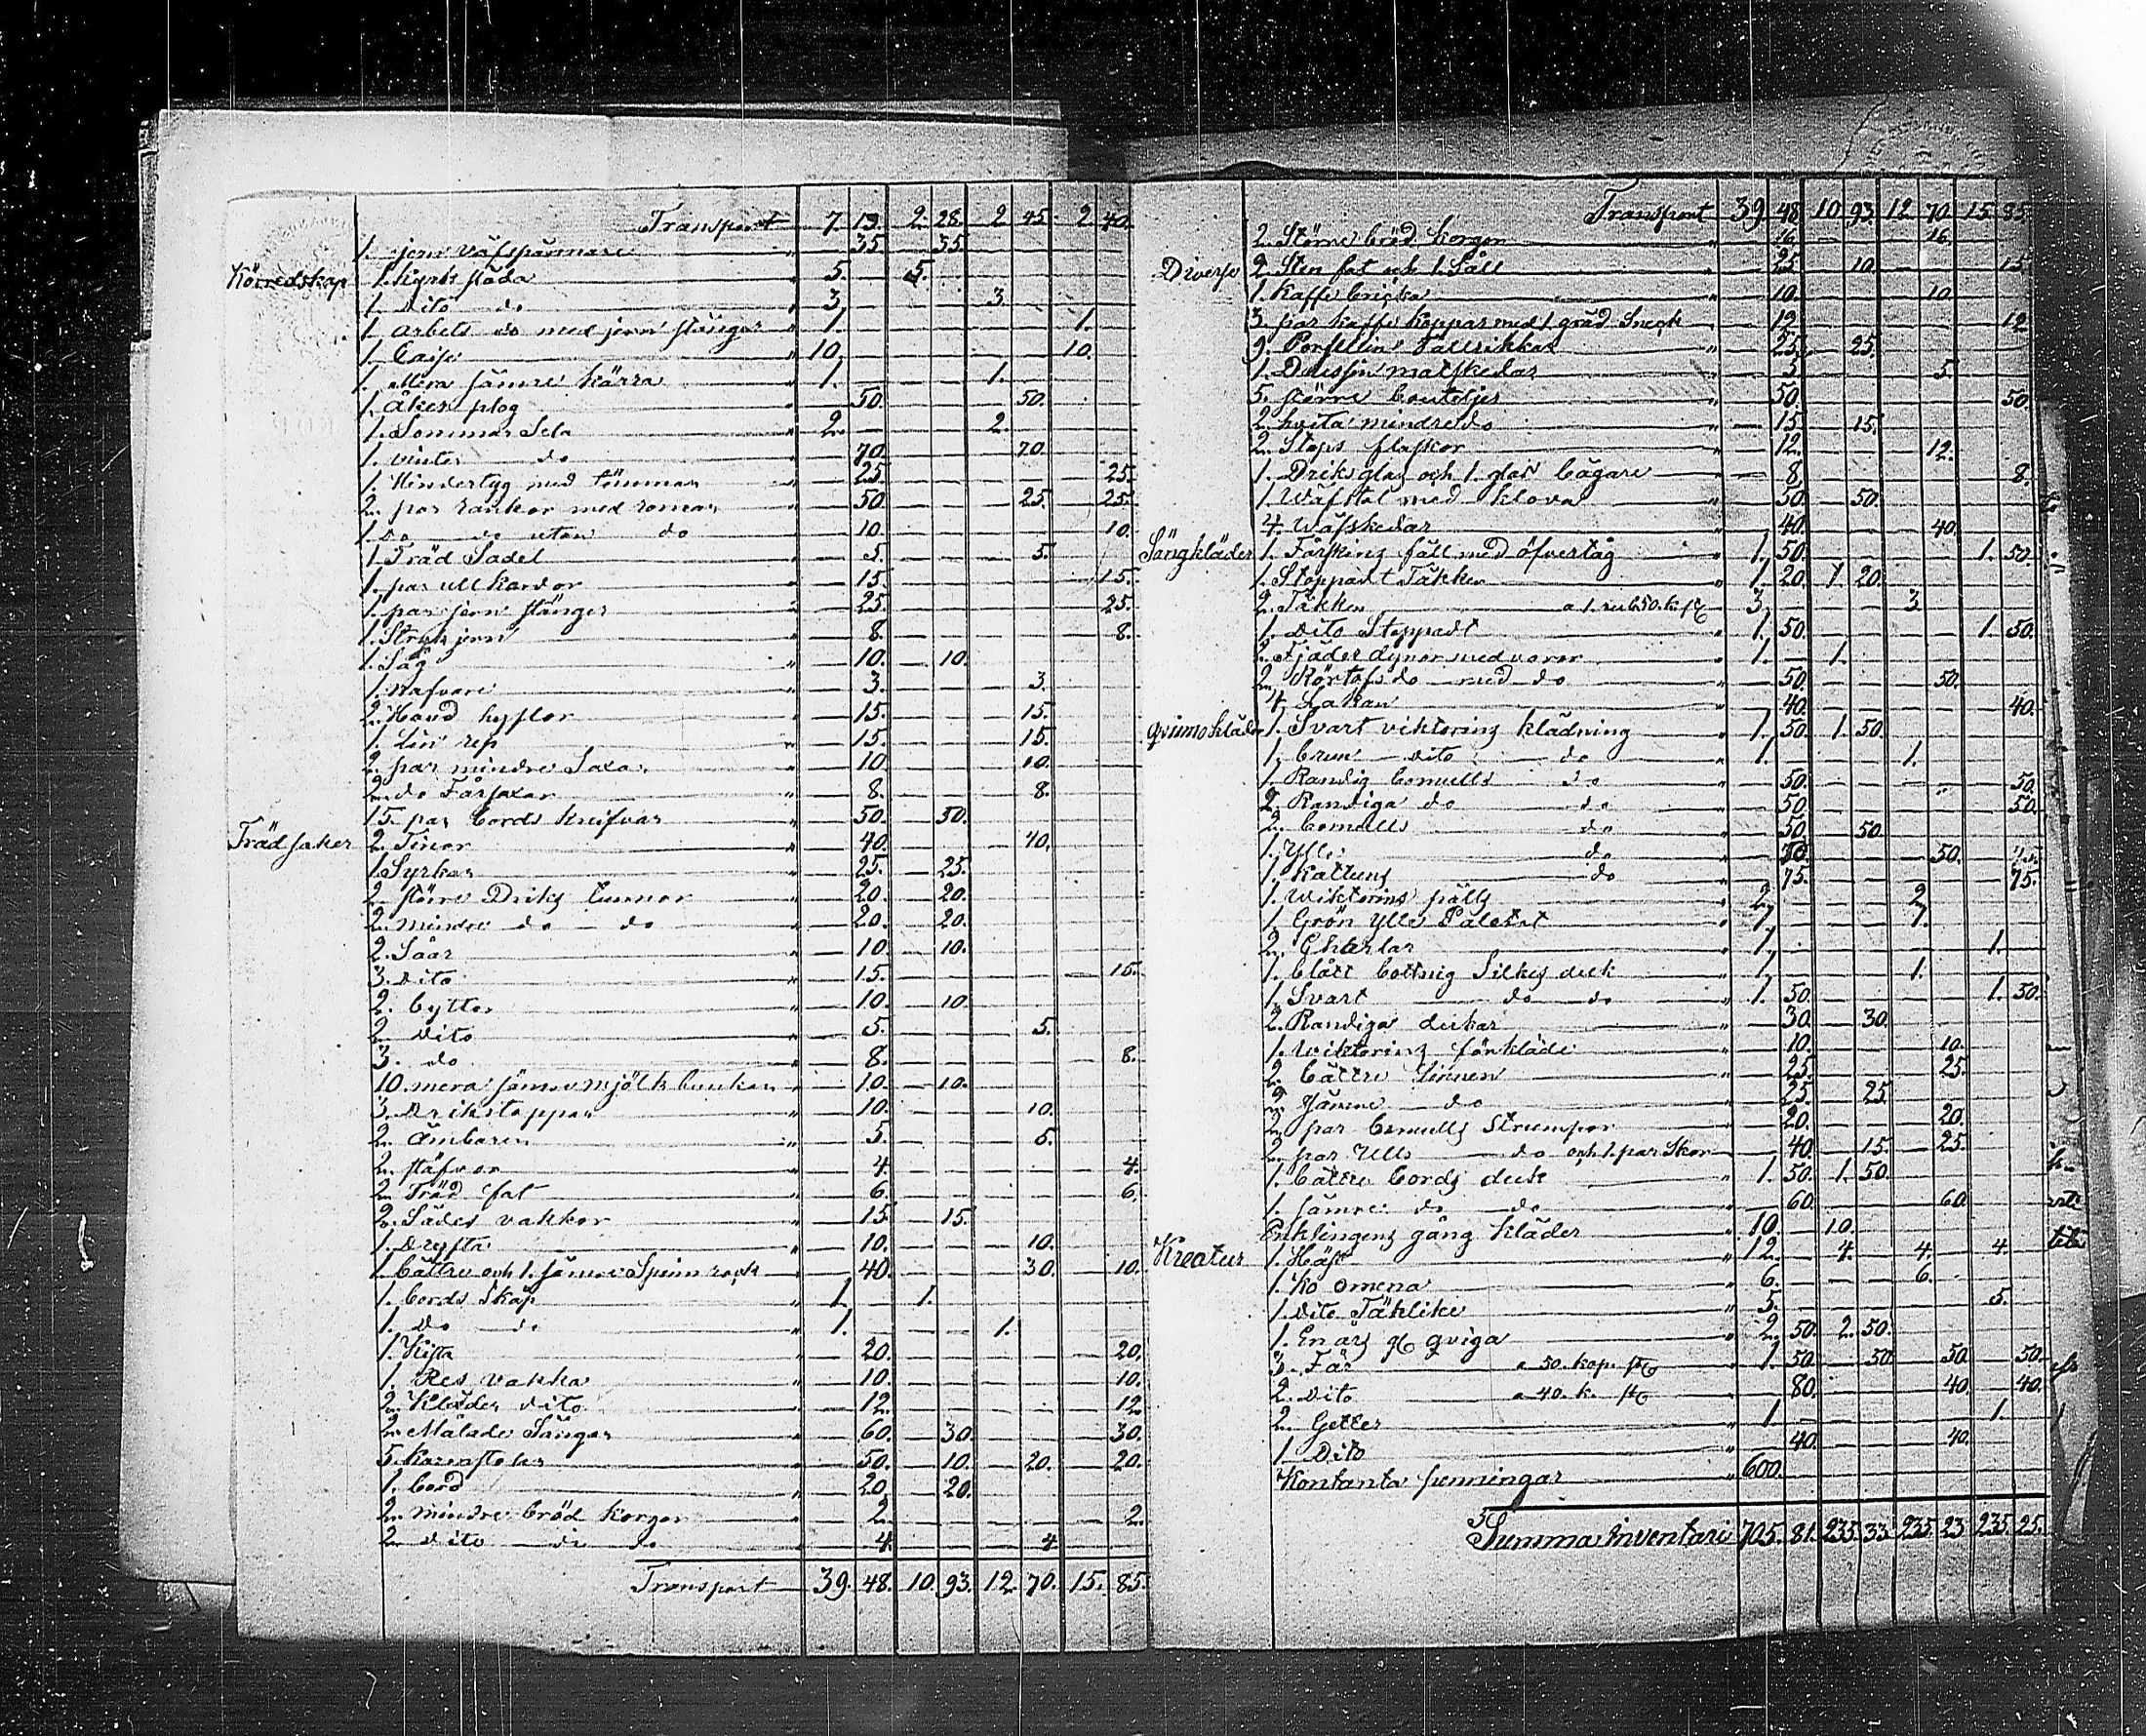 Transport 7. 13. 2. 28. 2 45. 2 40.
1. jern Väfspännare " 35 35.
Körredskap 1. Kyrk släda " 5. 5.
1. Dito do " 3. 3.
1. arbets do med jern stänger " 1. 1.
1. Caise " 10. 10.
1. mera sämre kärra " 1. 1.
1. åker plog " 50. 50.
1. Sommar Sela " 2. 2.
1. vinter do " 70. 70.
1. Hindertyg med tömmar " 25. 25.
2. par rankor med remar " 50. 25. 25.
1. Do do utan do " 10. 10.
1. Träd Sadel " 5. 5.
1. par ull kardor " 15. 15.
1. par jern stänger " 25. 25.
1. Stryk jern " 8. 8.
1. Såg " 10. 10.
1. Nafvare " 3. 3.
2. Hand hyflor " 15. 15.
1. Lin rep " 15. 15.
2. par mindre Saxar " 10. 10.
2. do Fårsaxar " 8. 8.
15. par bords knifvar " 50. 50.
Trädsaker 2. Tinor " 40. 40.
1. Syrkar " 25. 25.
2. större Driks tunnor " 20. 20.
2. mindre do do " 20. 20.
2. Såar " 10. 10.
3. Dito " 15. 15.
2. bytter " 10. 10.
2. Dito " 5. 5.
3. do " 8. 8.
10. mera sämre mjölk bunkar " 10. 10.
3. Drikstoppar " 10. 10.
2. Ämbaren " 5. 5.
2. stäfvor " 4. 4.
2. Träd fat " 6. 6.
2. Sädes vakkor " 15 15.
1. Dryfta " 10. 10.
1. bättre och 1. sämre Spinn rock " 40. 30. 10.
1. bords Skåp " 1. 1.
1. Do do " 1. 1.
1. Kista " 20. 20.
1. Res vakka " 10. 10.
2. Kläder dito " 12. 12.
2. Målade Sängar " 60. 30. 30.
5. Karmstolar " 50. 10. 20. 20.
1. bord " 20. 20.
2. mindre bröd korgar " 2. 2.
2. dito do do " 4. 4
Transport 39. 48. 10. 93. 12. 70. 15. 85.
Transport 39. 48. 10. 93. 12. 70. 15. 85.
2. Större bröd korgar " 16. 16.
Diverse 2. Sten fat och 1. Såll " 25 10. 15.
1. Kaffe bricka " 10. 10
3. par kaffe koppar med 1. gräd Sneck " 12. 12
9. Porsllin Tallrikkar " 25. 25.
1. Dussin matskedar " 5 5.
5. större bouteljer " 50. 50.
2. hvita mindre do " 15. 15.
2. Stops flaskor " 12. 12.
1. Driks glas och 1. glas bägare " 8. 8.
1. Wäfstol med klova " 50. 50.
4. Wäfskedar " 40. 40.
Sängkläder 1. Fårskins fäll med öfvertåg " 1. 50. 1. 50.
1. Stoppadt Täkke " 1. 20. 1 20.
2. Täkken a 1. rub 50. k. st " 3. 3.
1. Dito Stoppadt " 1. 50. 1. 50.
2. Fjäder dynor med varor " 1. 1.
2. Körtofs do med do " 50. 50.
4. Lakan " 40. 40.
qvinnokläder 1. Svart viktorins klädning " 1. 50. 1. 50.
1. brun dito do " 1. 1.
1. Randig bomulls do " 50. 50.
2. Randiga do do " 50. 50.
2. bomulls do " 50. 50.
1. Ylle do " 50. 50.
1. Kattuns do " 75. 75.
1. Wiktorins pälts " 2. 2.
1. Grön ylle Paletåt " 7. 7.
2. Charlar " 1. 1.
1. blått bottnig Silkes duk " 1. 1.
1. Svart do do " 1. 50. 1. 50.
2. Randiga dukar " 30. 30.
1. Wiktorins förkläde " 10. 10.
2. bättre Linnen " 25. 25.
2. Sämre do " 25. 25
2. par bomulls Strumpor " 20. 20.
2. par Ulls do och 1. par Skor " 40. 15. 25.
1. bättre bords duk " 1. 50. 1. 50.
1. sämre do do " 60. 60.
Enklingens gång kläder " 10. 10.
Kreatur 1. Häst " 12. 4. 4. 4.
1. Ko omena " 6. 6.
1. Dito Täklike " 5. 5.
1. En års gl qviga " 2. 50. 2. 50.
3. Får a 50. kop. st " 1. 50. 50. 50. 50.
2. Dito a 40. k. st " 80. 40. 40.
2. Getter " 1. 1.
1. Dito " 40. 40.
Kontanta penningar " 600.
Summa Inventarie 705. 81. 235. 33. 235. 23. 235. 25.